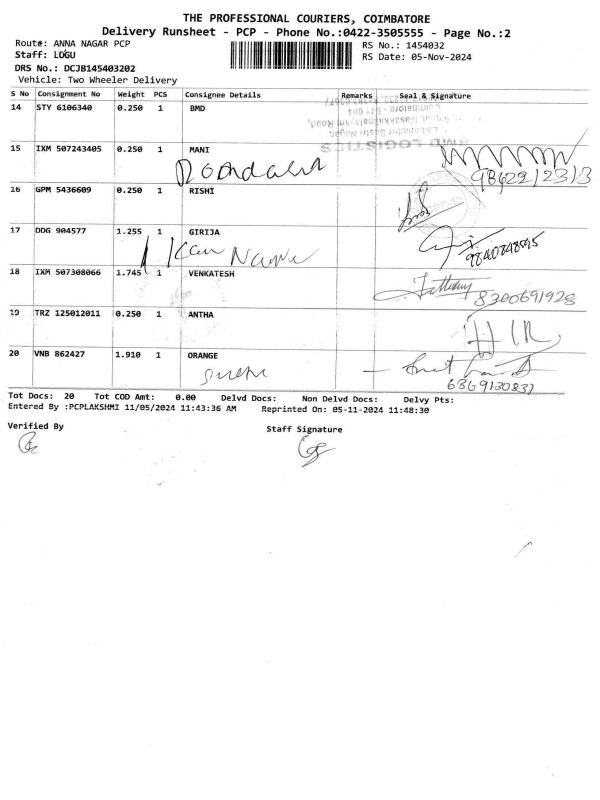 THE PROFESSIONAL COURIERS, COIMBATORE
Delivery Runsheet - PCP - Phone No.:0422-3505555 - Page No.:2
Route: ANNA NAGAR PCP
RS No.: 1454032
Staff: LOGU
RS Date: 05-Nov-2024
DRS No.: DCJB145403202
Vehicle: Two Wheeler Delivery
S No Consignment No Weight PCS Consignee Details Remarks Seal & Signature
14 STY 6106340 0.250 1 BMD
BMD LOGISTICS
Coimbatore - 641 004
15 IXM 507243405 0.250 1 MANI
9842212313
16 GPM 5436609 0.250 1 RISHI
17 DDG 904577 1.255 1 GIRIJA
9840848595
18 IXM 507308066 1.745 1 VENKATESH
8300691928
19 TRZ 125012011 0.250 1 ANTHA
20 VNB 862427 1.910 1 ORANGE
6369130837
Tot Docs: 20 Tot COD Amt: 0.00 Delvd Docs: Non Delvd Docs: Delvy Pts:
Entered By :PCPLAKSHMI 11/05/2024 11:43:36 AM Reprinted On: 05-11-2024 11:48:30
Verified By
Staff Signature